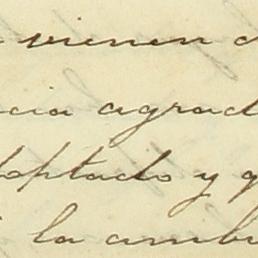 vienen
cia agrad
doptado y
la ambi